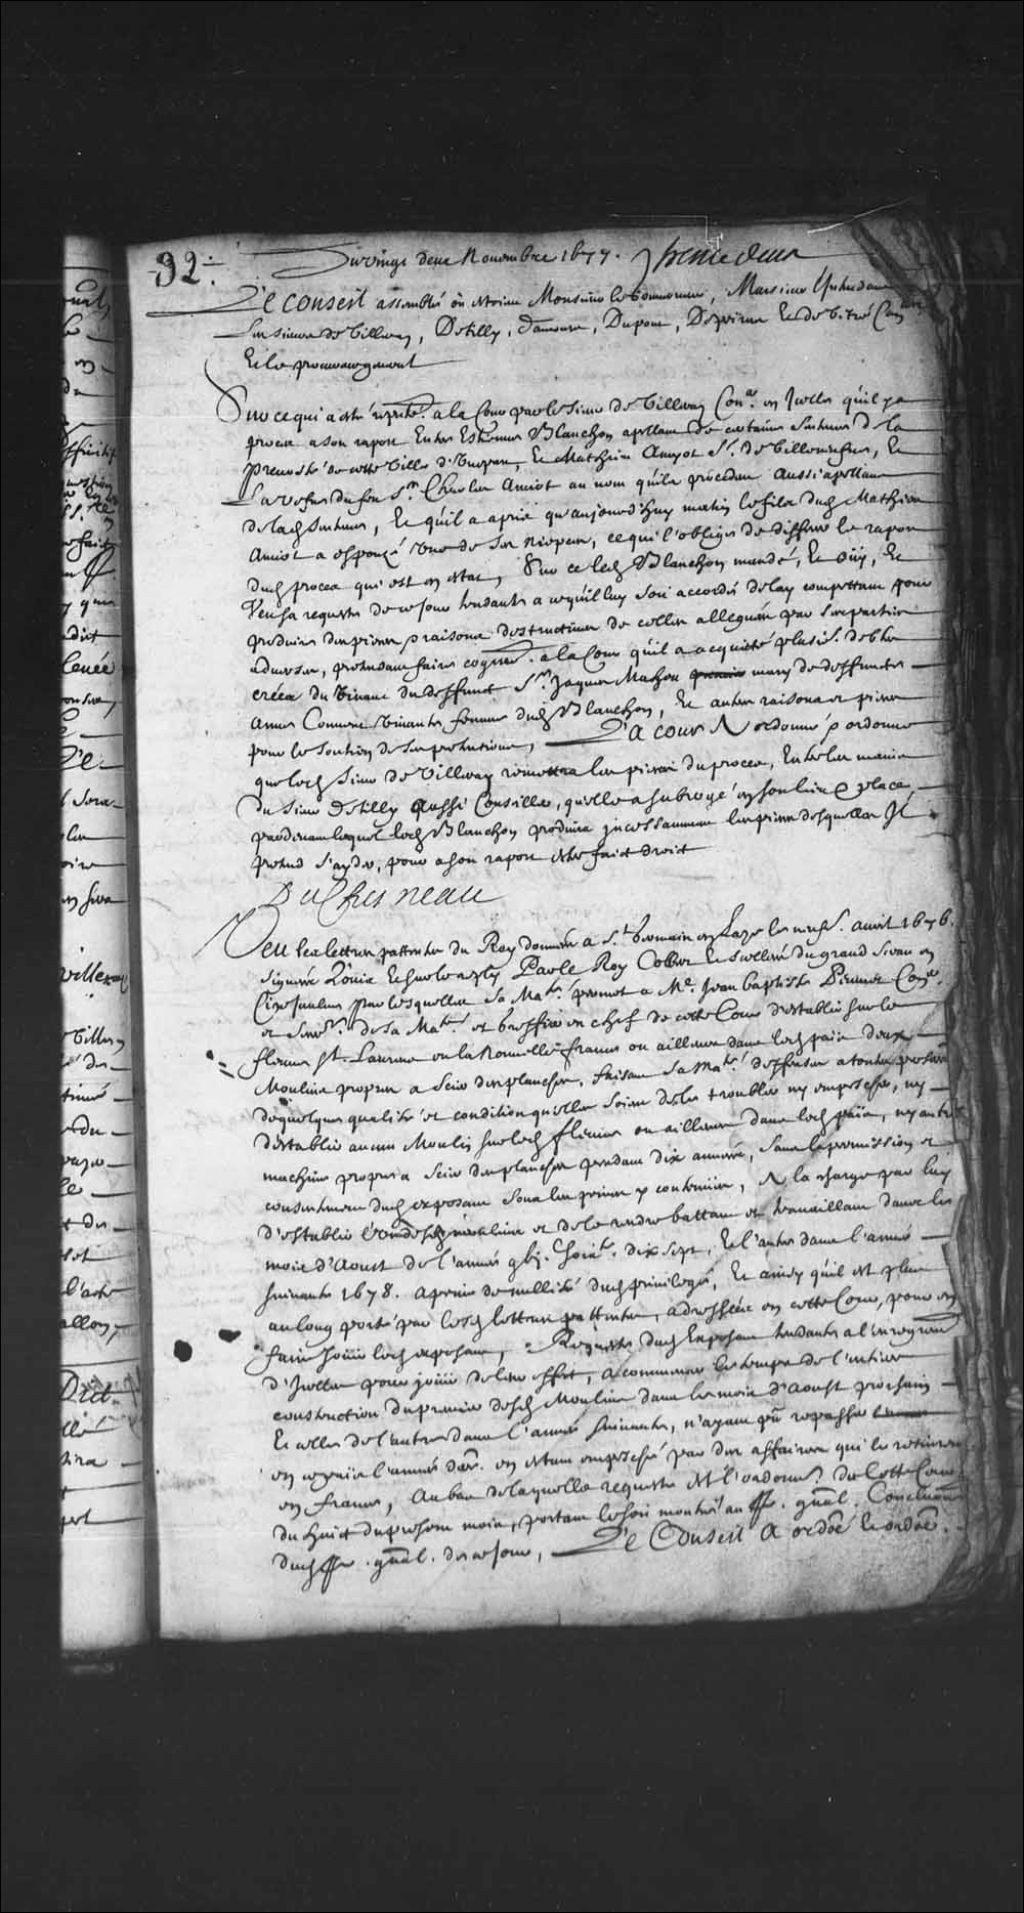 92.
Du vingt deux Novembre 1677.
Le conseil assemblé où estoient Monsieur le Gouverneur, Monsieur l'Intendant
Les sieurs de Villeray, De Tilly, Damours, Dupont, Depeiras Et de Vitré Con.ers
Et le procureur general
Sur ce qui a esté representé a la Cour par le sieur de Villeray Con.er en Icelle qu'il y a
proces a son raport Entre Estienne Blanchon apellant de certaine sentence de la
prevosté de cette Ville d'une part, Et Mathieu Amyot S.r de Villeneufve, Et
La vefve du feu S.r Charles Amiot au nom qu'elle procede aussi apellans
de lad. sentence, Et qu'il a apris qu'aujourd'huy matin le fils dud. Mathieu
Amiot a espouzé une de ses niepces, ce qui l'oblige de differer le raport
dud. proces qui est en estat, Sur ce led. Blanchon mandé, Et oüy, Et
Veu sa requeste de ce jour tendante a ce qu'il luy soit accordé delay competant pour
produire des pieces & raisons destructives de celles alleguées par ses parties
adverses, pretendant faire cognoistre a la Cour qu'il a acquitté plusieurs debtes
creées du vivant du deffunct S.r Jaques Machon mary de deffuncte
Anne Convent vivante femme dud. Blanchon, Et autres raisons et pieces
pour le soutien de ses pretentions, La cour a ordonné & ordonne
que led. sieur de Villeray remettra les pieces du proces, Entre les mains
du sieur de Tilly aussi Conseiller, qu'elle a subrogé en son lieu & place,
pardevant lequel led. Blanchon produira incessamment les pieces desquelles Il
pretend s'ayder, pour a son raport estre faict droict
DuChesneau
Veu les lettres pattentes du Roy données a S.t Germain en Laye le neuf.e avril 1676.
signées Louis Et sur le reply Par le Roy Colbert Et scellées du grand sceau en
Cire jaulne par lesquelles Sa Ma.té permet a M.e Jean baptiste Peuvret Con.er
et secre.re de sa Ma.té et greffier en chef de cette Cour d'establir sur le
fleuve S.t Laurens en la Nouvelle france ou ailleurs dans led. païs deux
Moulins propres a scier des planches, faisant sa Ma.té deffenses a toutes personnes
de quelques qualité et condition qu'elles soient de les troubler ny empescher, ny
d'establir aucun Moulin sur led. fleuve ou ailleurs dans led. païs, ny autre
machine propre a scier des planches pendant dix années, sans la permission et
consentement dud. exposant sous les peines y contenües, A la charge par luy
d'establir l'un desd. moulins et de le rendre battant et travaillant dans le
mois d'Aoust de l'année gbj.c soix.te dix sept, Et l'autre dans l'année
suivante 1678. a peine de nullité dud. privilege, Et ainsy qu'il est plus
au long porté par lesd. lettres pattentes, adressées en cette Cour, pour en
faire joüir led. exposant, Requeste dud. Exposant tendante a l'enregistrement
d'Icelles pour joüir de leur effect, a commencer le temps de l'entiere
construction du premier desd. Moulins dans le mois d'Aoust prochain
Et celle de l'autre dans l'année suivante, n'ayant pû repasser
en ce païs l'année der.e en estant empesché par des affaires qui le retinrent
en france, Au bas de laquelle requeste est l'ordonnance de Cette Cour
du huict du present mois, portant le soit montré au pr. gn̄al. Conclusions
dud. pr. gn̄al. de ce jour, Le Conseil A ordoné Et ordone